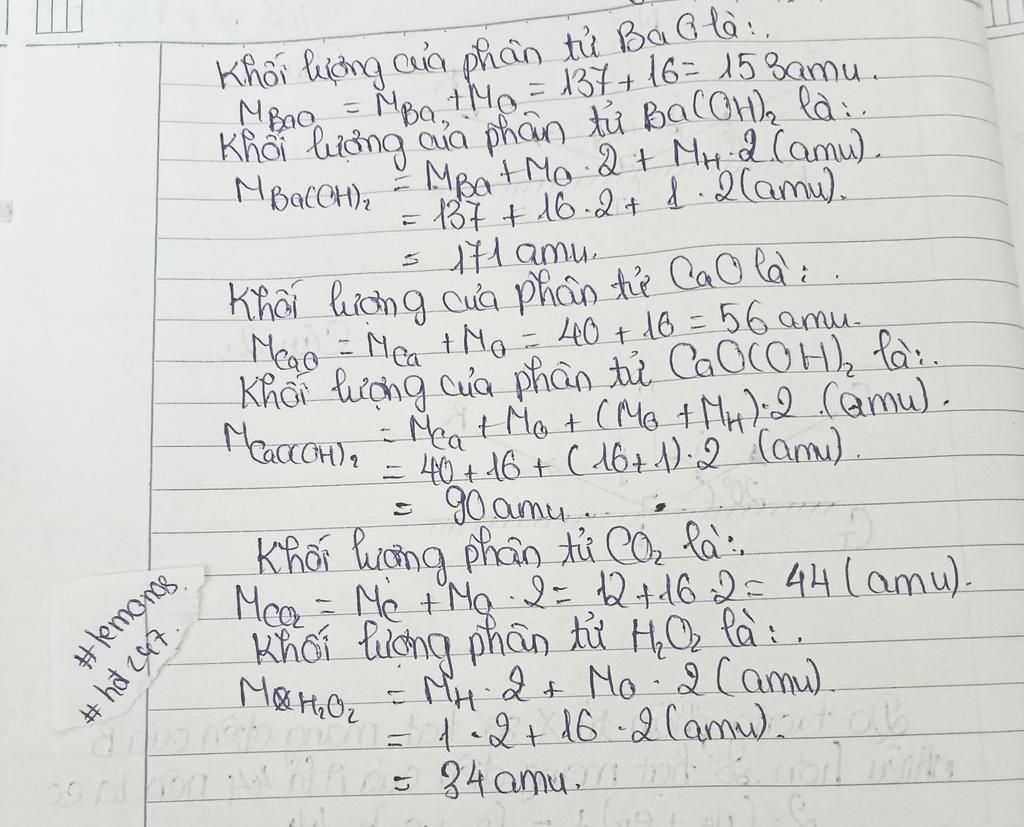 Khối lượng của phân tử BaO là:.
MBaO = MBa + MO = 137 + 16 = 153amu.
Khối lượng của phân tử Ba(OH)₂ là:.
MBa(OH)₂ = MBa + MO · 2 + MH · 2 (amu).
= 137 + 16 · 2 + 1 · 2 (amu).
= 171 amu.
Khối lượng của phân tử CaO là: .
MCaO = MCa + MO = 40 + 16 = 56 amu.
Khối lượng của phân tử CaO(OH)₂ là:.
MCaO(OH)₂ = MCa + MO + (MO + MH) · 2 (amu).
= 40 + 16 + (16 + 1) · 2 (amu).
= 90 amu.
Khối lượng phân tử CO₂ là:.
MCO₂ = MC + MO · 2 = 12 + 16 · 2 = 44 (amu).
Khối lượng phân tử H₂O₂ là: .
MH₂O₂ = MH · 2 + MO · 2 (amu).
= 1 · 2 + 16 · 2 (amu).
= 34 amu.
#lemonos.
#hđ 247.